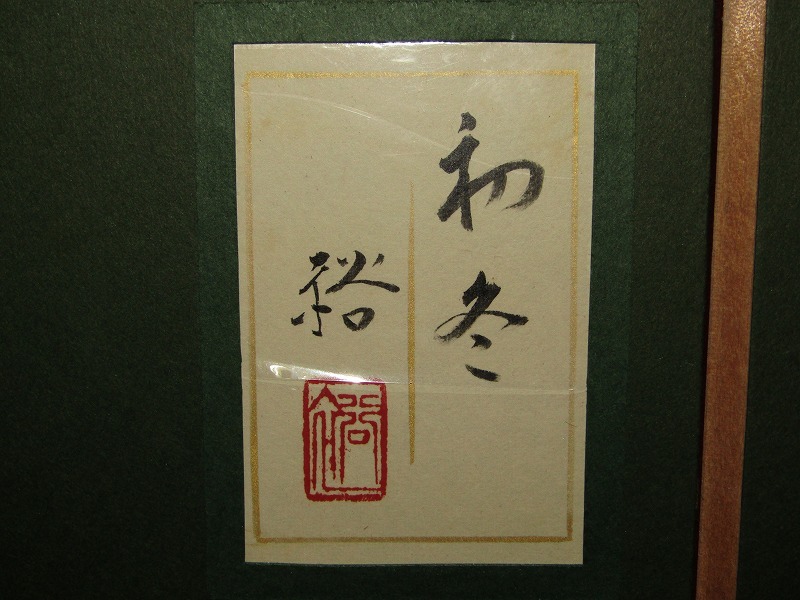 初冬
裕
裕